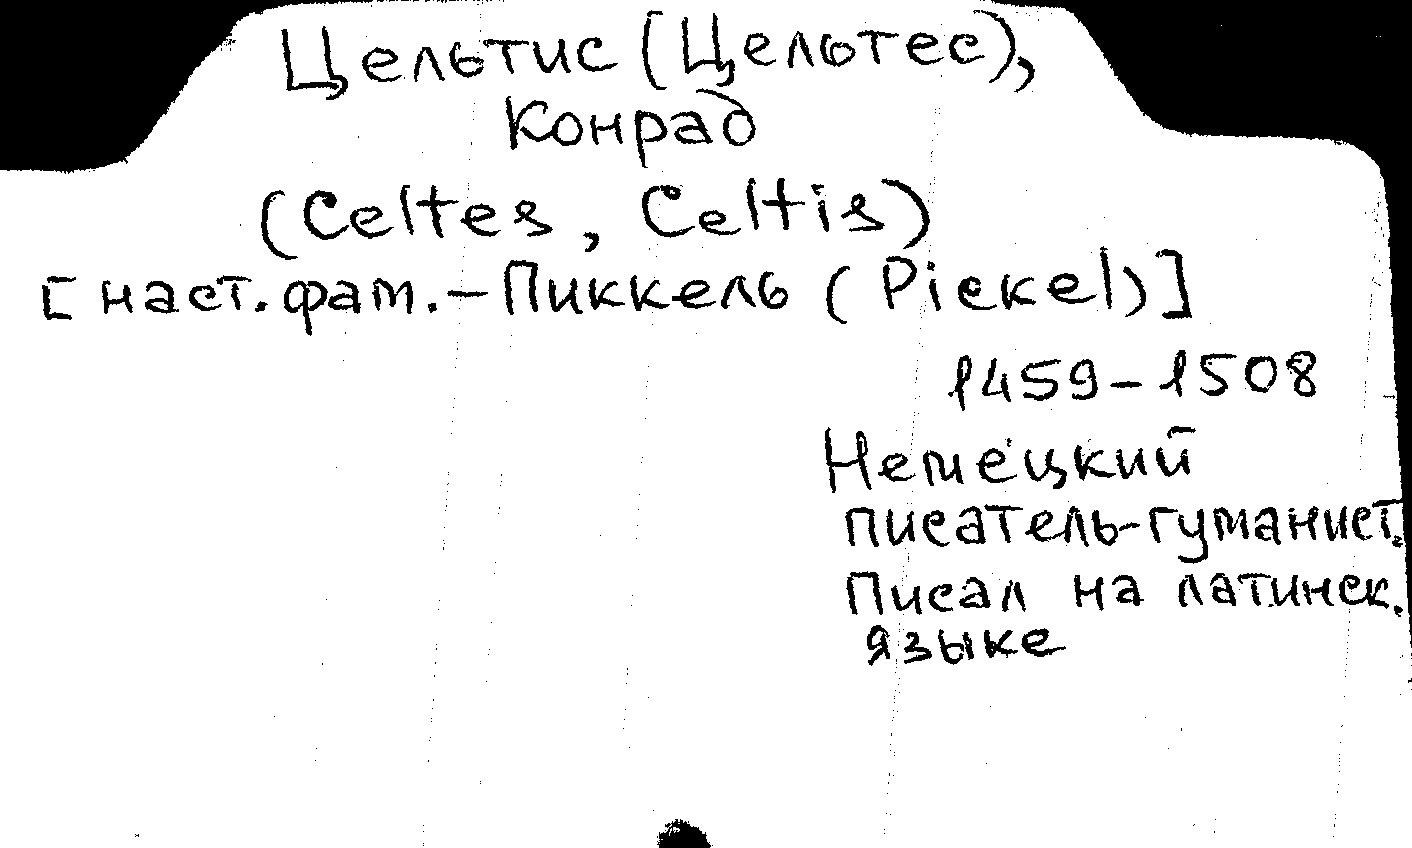 Цельтис (Цельтес),
Конрад
(Celtes, Celtis)
[наст. фам. – Пиккель (Pickel)]
1459–1508
Немецкий
писатель-гуманист.
Писал на латинск.
языке